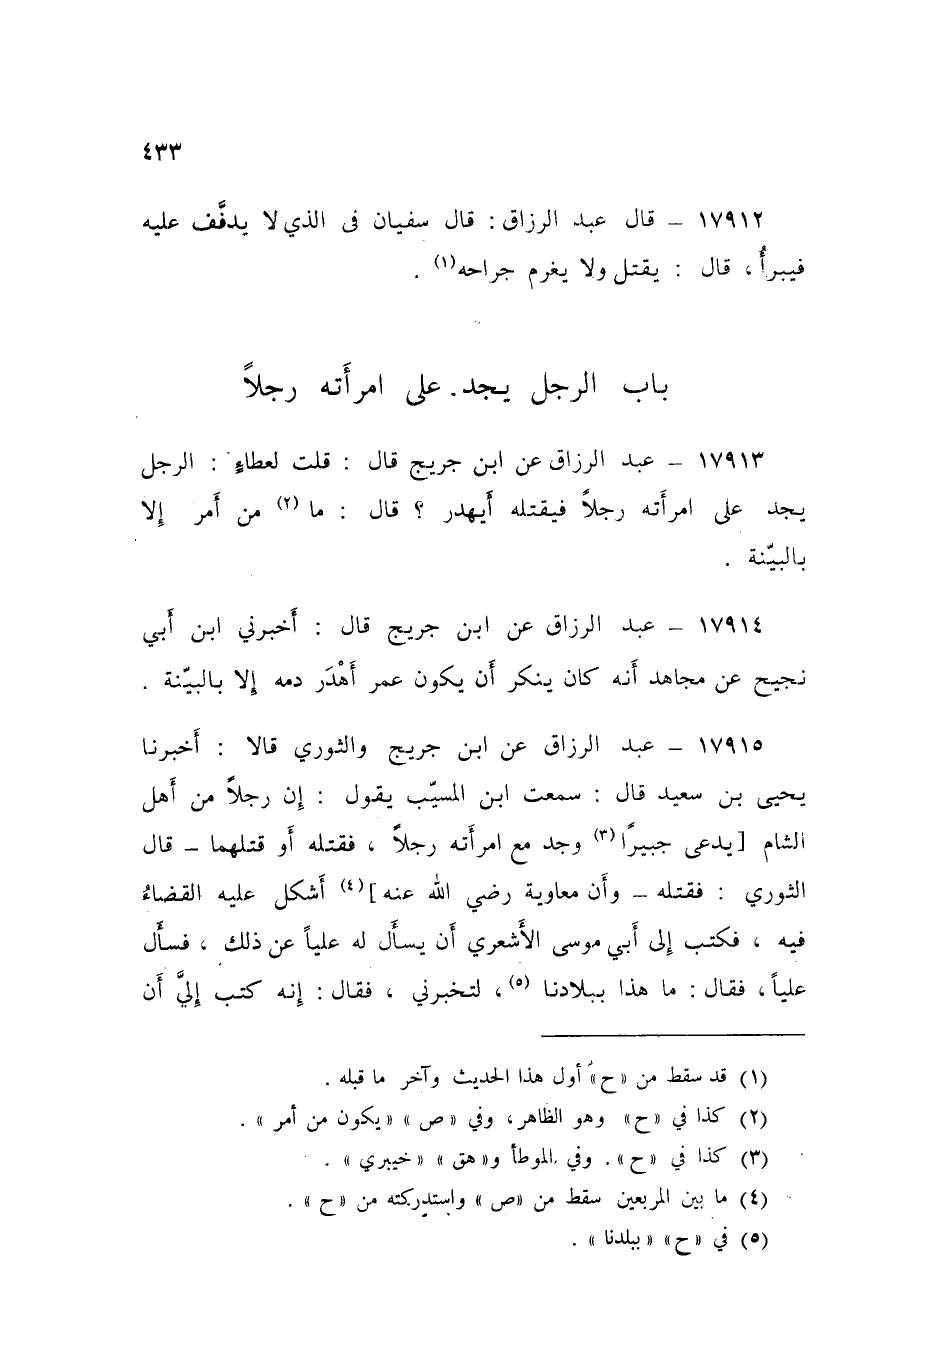 ٤٣٣
١٧٩١٢ – قال عبد الرزاق : قال سفيان في الذي لا يدفَّف عليه
فيبرأُ ، قال : يقتل ولا يغرم جراحه (١) .
باب الرجل يجد على امرأَته رجلاً
١٧٩١٣ – عبد الرزاق عن ابن جريج قال : قلت لعطاءٍ : الرجل
يجد على امرأَته رجلاً فيقتله أَيهدر ؟ قال : ما (٢) من أَمر إِلا
بالبيّنة .
١٧٩١٤ – عبد الرزاق عن ابن جريج قال : أَخبرني ابن أَبي
نجيح عن مجاهد أَنه كان ينكر أَن يكون عمر أَهْدَر دمه إِلا بالبيّنة .
١٧٩١٥ – عبد الرزاق عن ابن جريج والثوري قالا : أَخبرنا
يحيى بن سعيد قال : سمعت ابن المسيّب يقول : إِن رجلاً من أَهل
الشام [ يدعى جبيرًا (٣) وجد مع امرأَته رجلاً ، فقتله أَو قتلهما – قال
الثوري : فقتله – وأَن معاوية رضي الله عنه ] (٤) أَشكل عليه القضاءُ
فيه ، فكتب إِلى أَبي موسى الأَشعري أَن يسأَل له علياً عن ذلك ، فسأَل
علياً ، فقال : ما هذا ببلادنا (٥) ، لتخبرني ، فقال : إِنه كتب إِليَّ أَن
(١) قد سقط من «ح» أول هذا الحديث وآخر ما قبله .
(٢) كذا في «ح» وهو الظاهر، وفي «ص» «يكون من أمر» .
(٣) كذا في «ح» . وفي الموطأ و«هق» «خيبري» .
(٤) ما بين المربعين سقط من «ص» واستدركته من «ح» .
(٥) في «ح» «ببلدنا» .